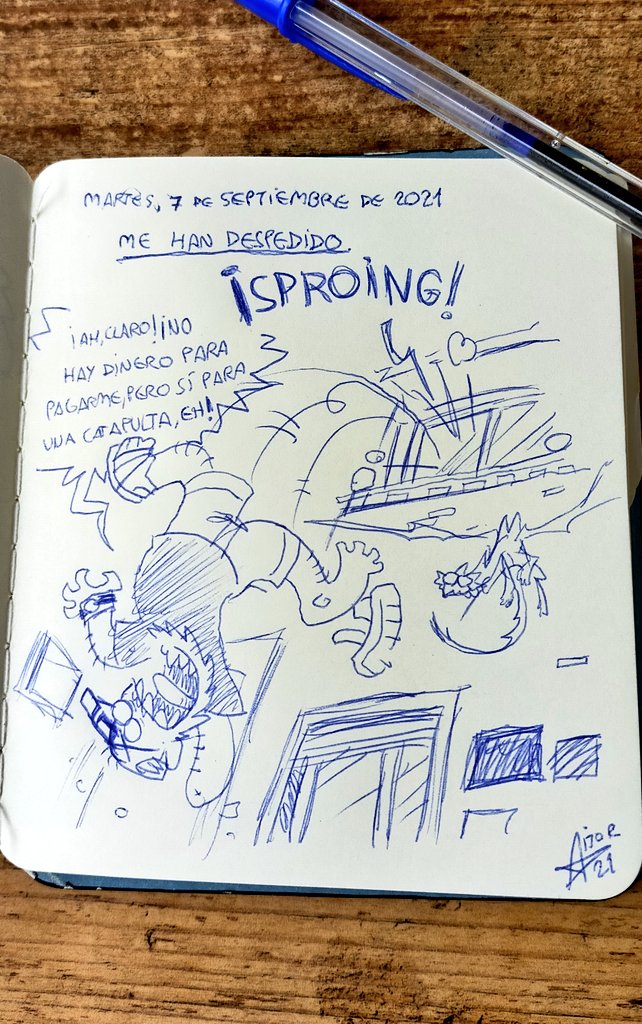 MARTES, 7 DE SEPTIEMBRE DE 2021
ME HAN DESPEDIDO.
¡SPROING!
¡AH, CLARO! ¡NO
HAY DINERO PARA
PAGARME, PERO SÍ PARA
UNA CATAPULTA, EH!
AITOR
21